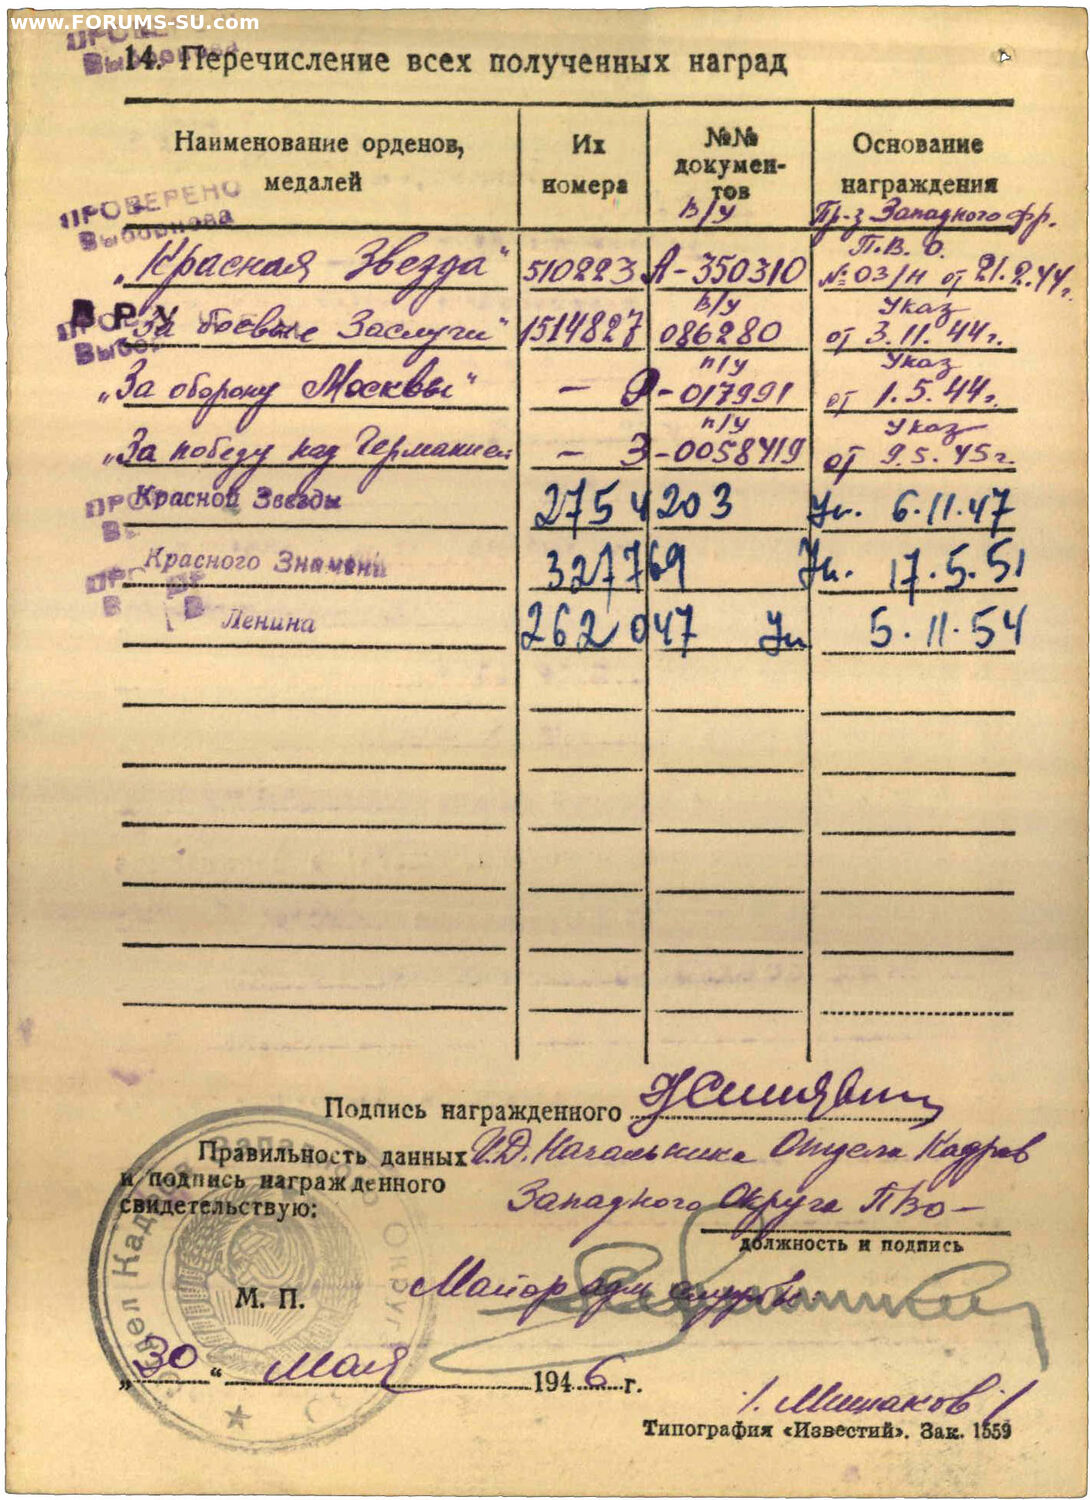 www.FORUMS-SU.com
14. Перечисление всех полученных наград
Наименование орденов, медалей
Их номера
№№ документов
Основание награждения
ПРОВЕРЕНО
Выборнова
в/у Пр-з Западного фр.
П.В.О.
„Красная Звезда" 510223 А-350310 №03/н от 21.2.44г.
в/у Указ
„За боевые Заслуги" 1514827 086280 от 3.11.44г.
п/у Указ
„За оборону Москвы" — -017991 от 1.5.44г.
п/у Указ
„За победу над Германией — З-0058419 от 9.5.45г.
Красной Звезды 2754203 Ук. 6.11.47
Красного Знамени 327769 Ук. 17.5.51
Ленина 262047 Ук 5.11.54
Подпись награжденного
Правильность данных И.Д. Начальника Отдела Кадров
и подпись награжденного
свидетельствую: Западного Округа ПВО —
должность и подпись
М. П. Майор адм службы
„30" мая 1946 г.
/. Мишаков /
Типография «Известий». Зак. 1559